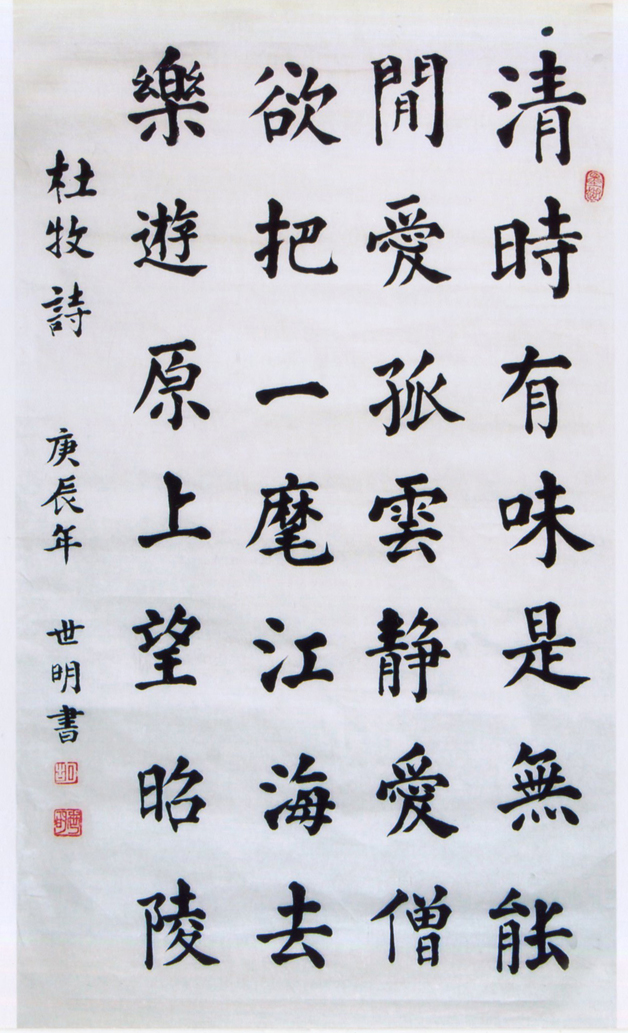 清時有味是無能
閒愛孤雲靜愛僧
欲把一麾江海去
樂遊原上望昭陵
杜牧詩 庚辰年 世明書